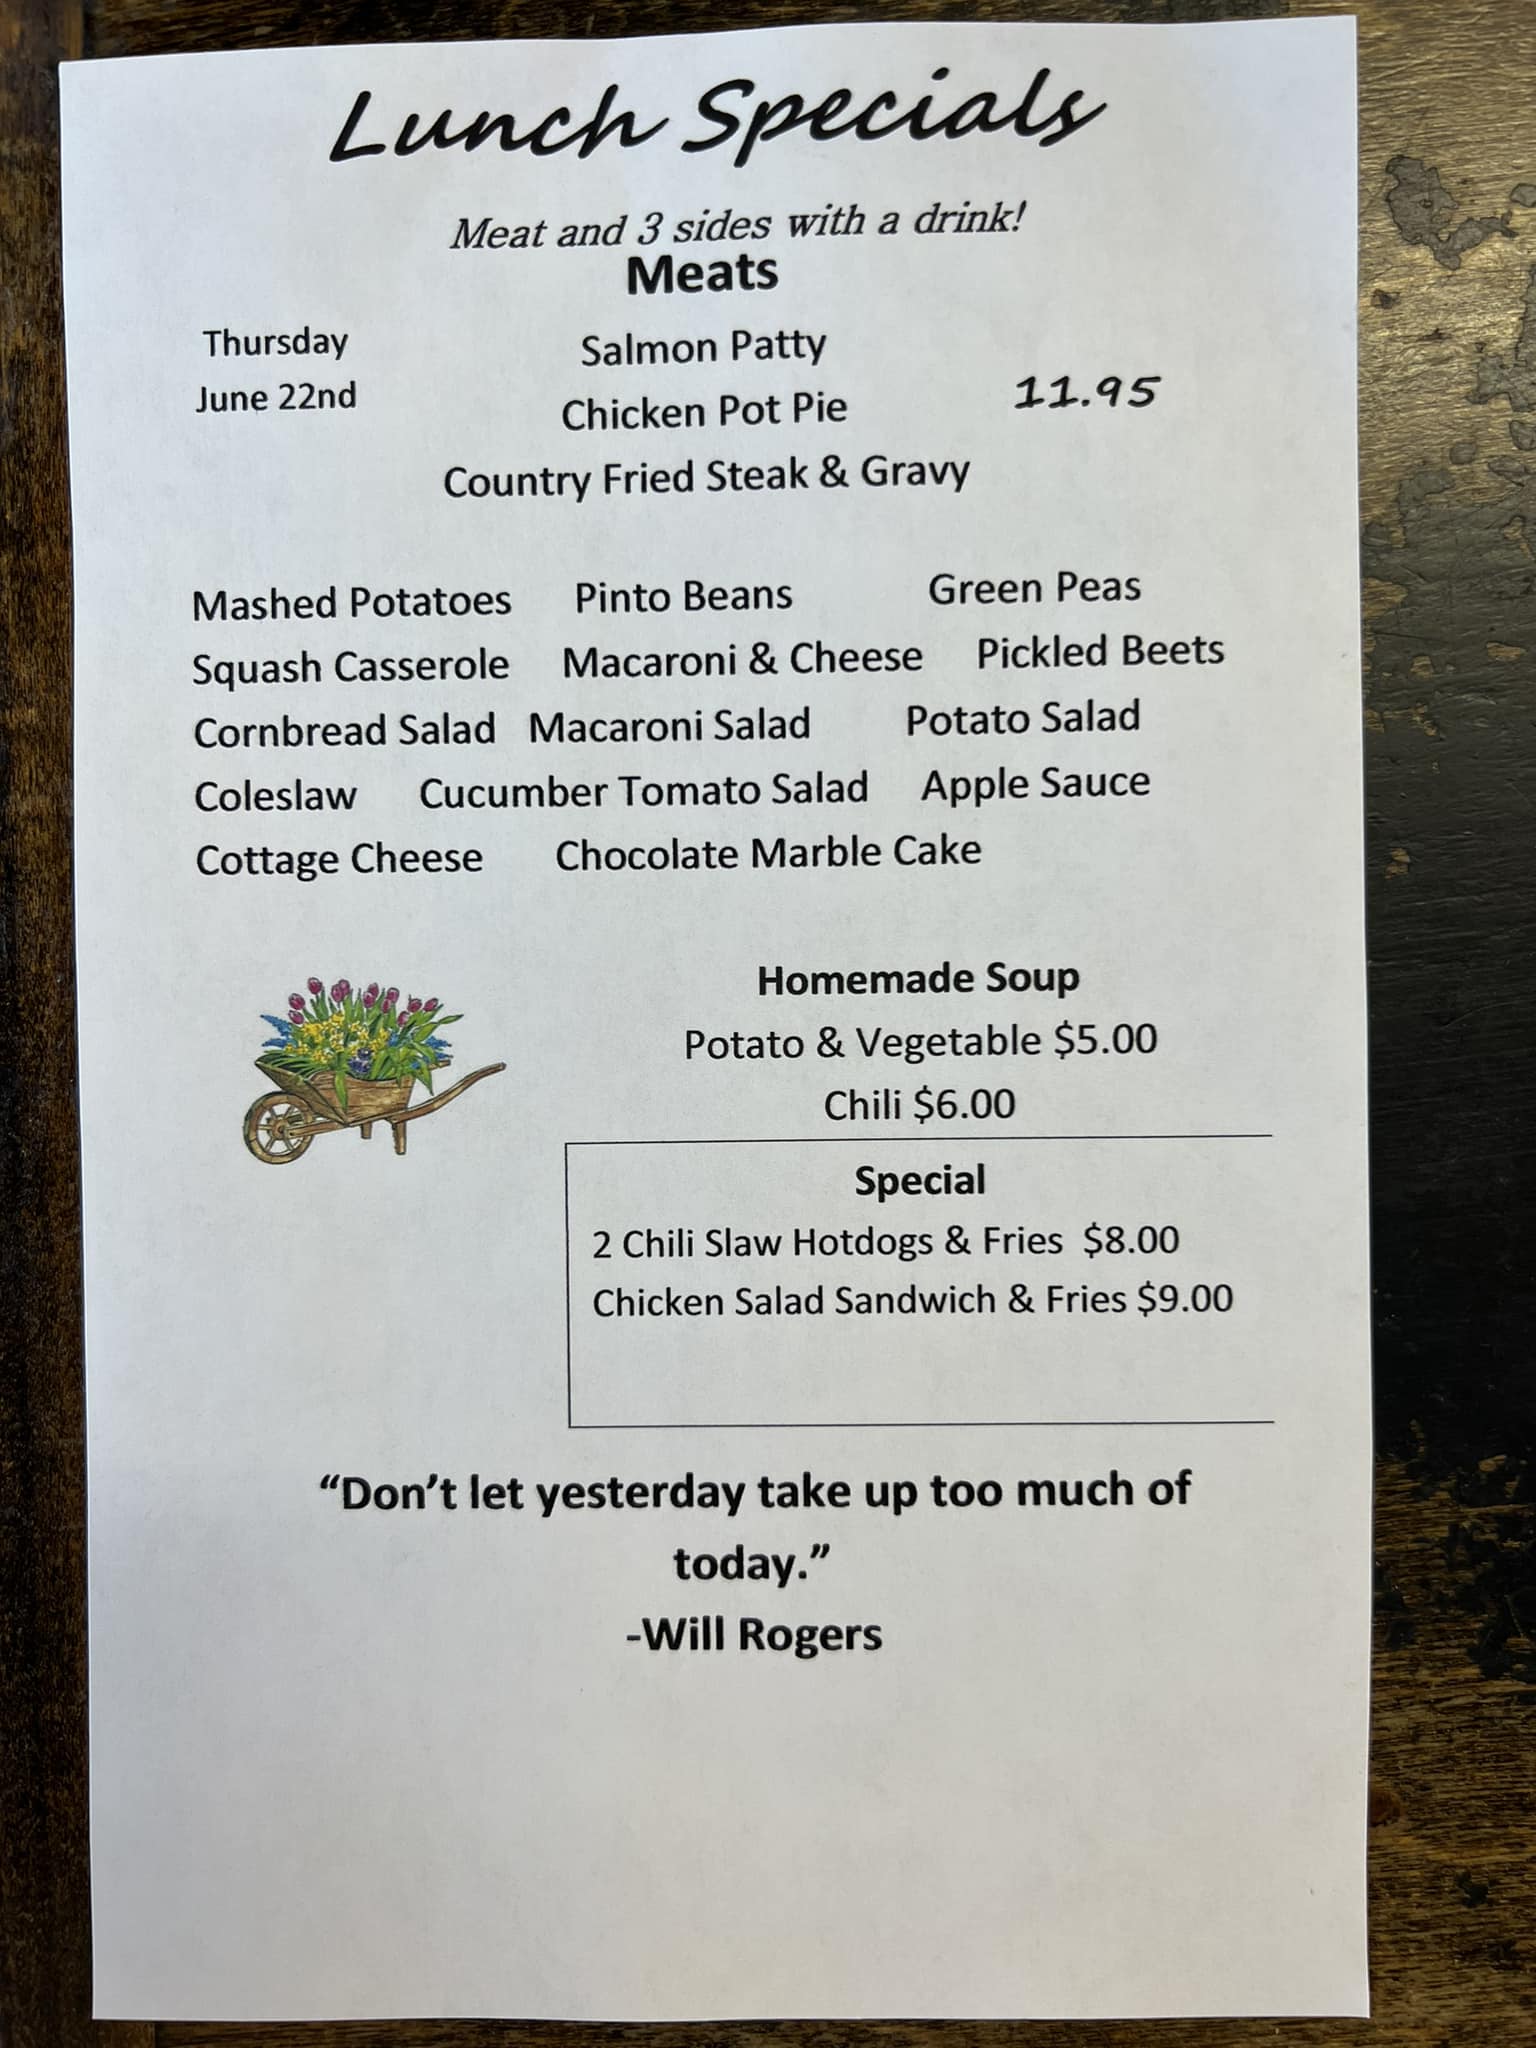 Lunch Specials
Meat and 3 sides with a drink!
Meats
Thursday Salmon Patty
June 22nd Chicken Pot Pie 11.95
Country Fried Steak & Gravy
Mashed Potatoes Pinto Beans Green Peas
Squash Casserole Macaroni & Cheese Pickled Beets
Cornbread Salad Macaroni Salad Potato Salad
Coleslaw Cucumber Tomato Salad Apple Sauce
Cottage Cheese Chocolate Marble Cake
Homemade Soup
Potato & Vegetable $5.00
Chili $6.00
Special
2 Chili Slaw Hotdogs & Fries $8.00
Chicken Salad Sandwich & Fries $9.00
“Don’t let yesterday take up too much of
today.”
-Will Rogers